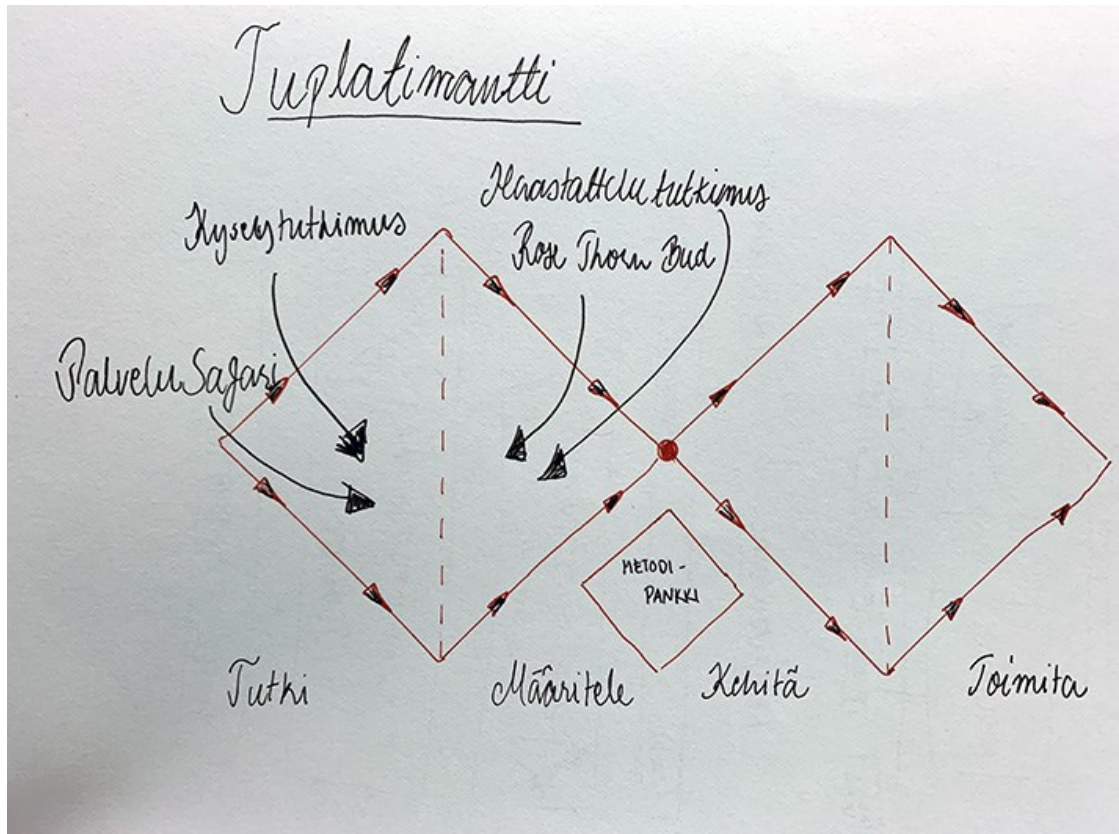 Tuplatimantti
Haastattelututkimus
Kyselytutkimus
Rose Thorn Bud
PalveluSafari
METODI-
PANKKI
Tutki
Määritele
Kehitä
Toimita